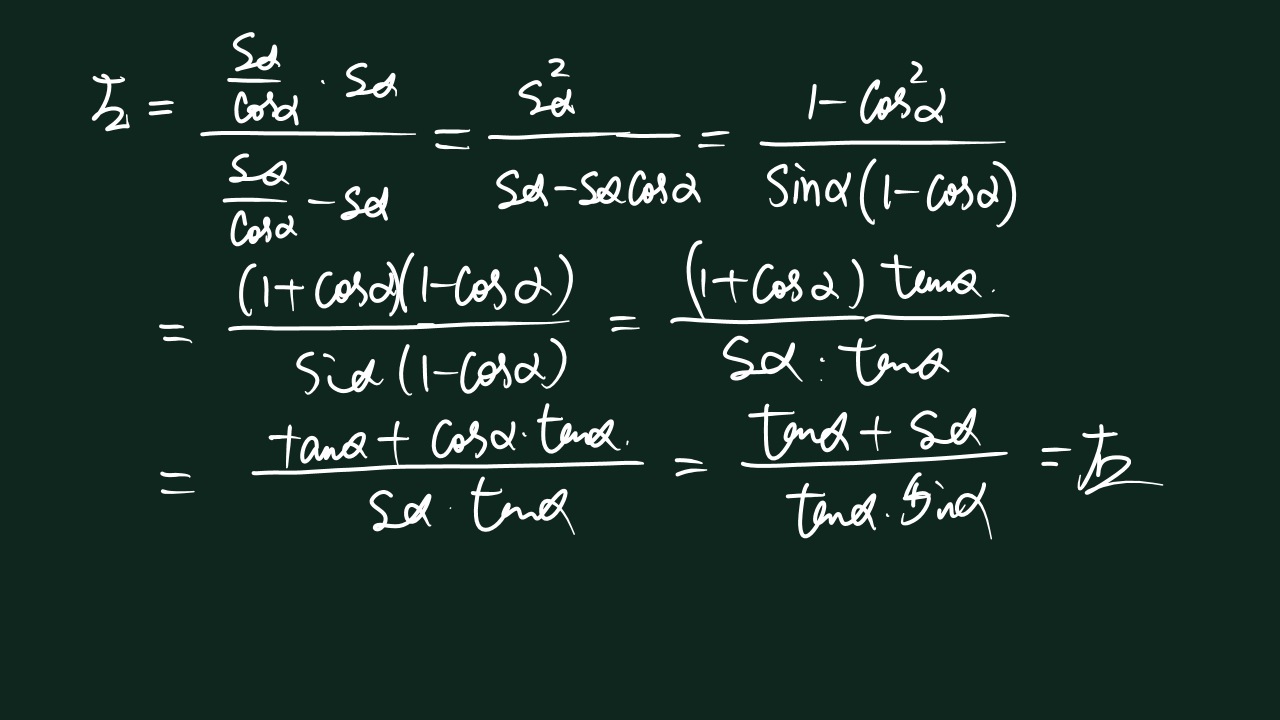 左 = (sα/cosα · sα)/(sα/cosα - sα) = s²α/(sα - sα cosα) = (1 - cos²α)/(sinα(1 - cosα))
= ((1 + cosα)(1 - cosα))/(sinα(1 - cosα)) = ((1 + cosα) tanα)/(sα · tanα)
= (tanα + cosα · tanα)/(sα · tanα) = (tanα + sα)/(tanα · sinα) = 右